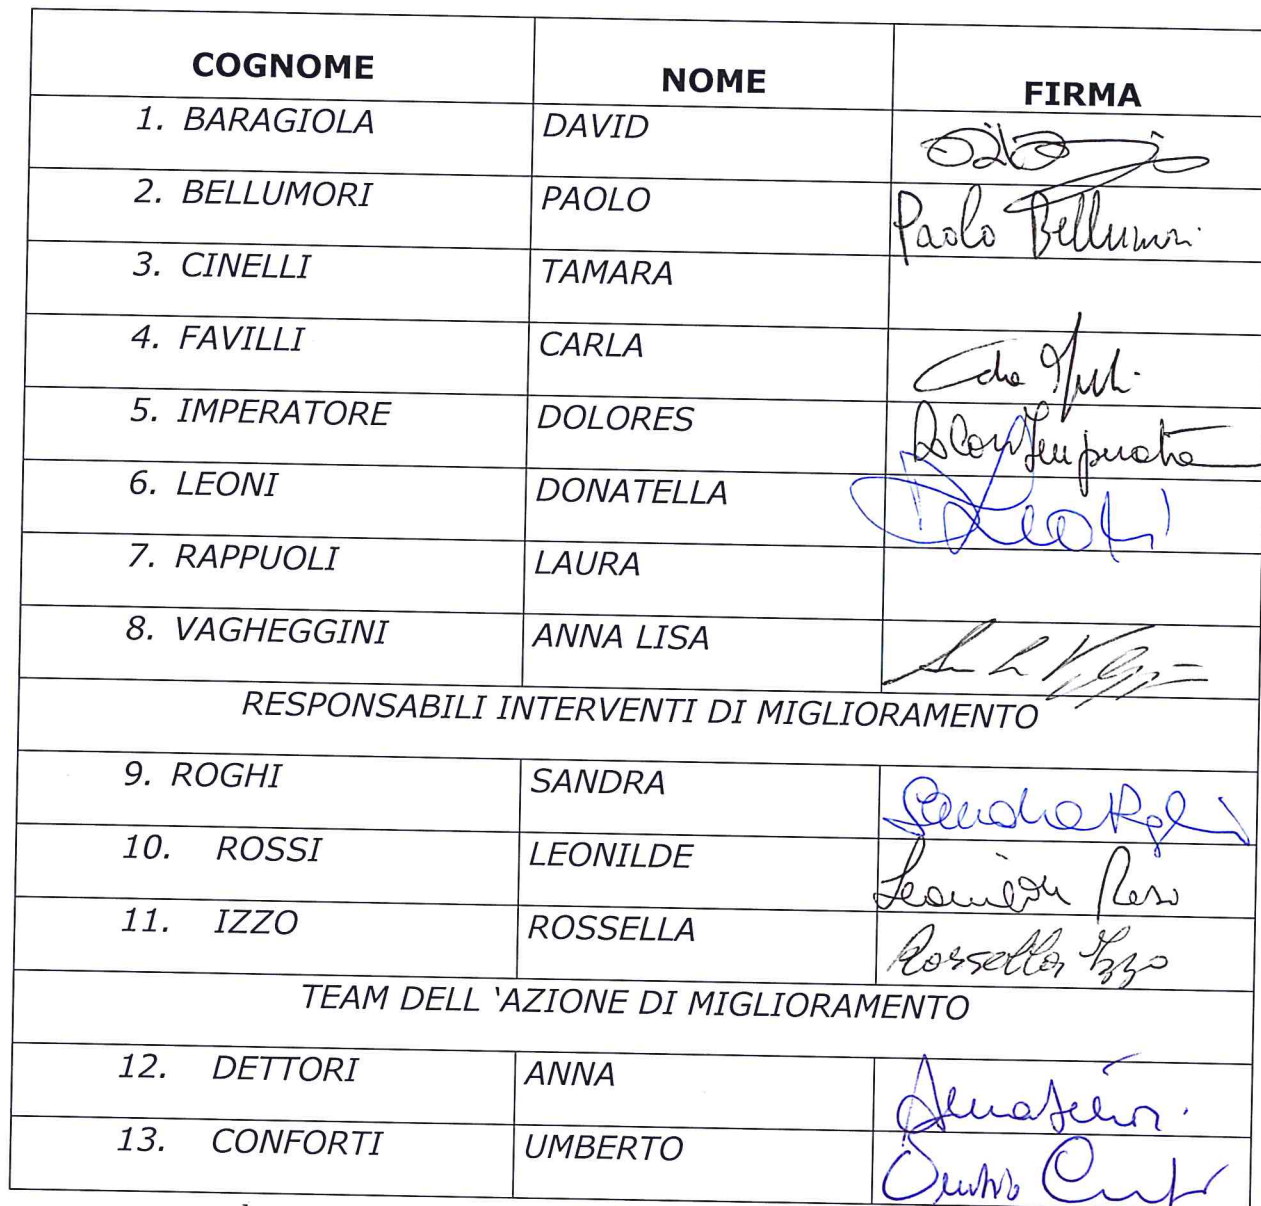 COGNOME NOME FIRMA
1. BARAGIOLA DAVID
2. BELLUMORI PAOLO Paolo Bellumori
3. CINELLI TAMARA
4. FAVILLI CARLA
5. IMPERATORE DOLORES
6. LEONI DONATELLA
7. RAPPUOLI LAURA
8. VAGHEGGINI ANNA LISA
RESPONSABILI INTERVENTI DI MIGLIORAMENTO
9. ROGHI SANDRA Sandra Roghi
10. ROSSI LEONILDE
11. IZZO ROSSELLA Rossella Izzo
TEAM DELL ‘AZIONE DI MIGLIORAMENTO
12. DETTORI ANNA
13. CONFORTI UMBERTO